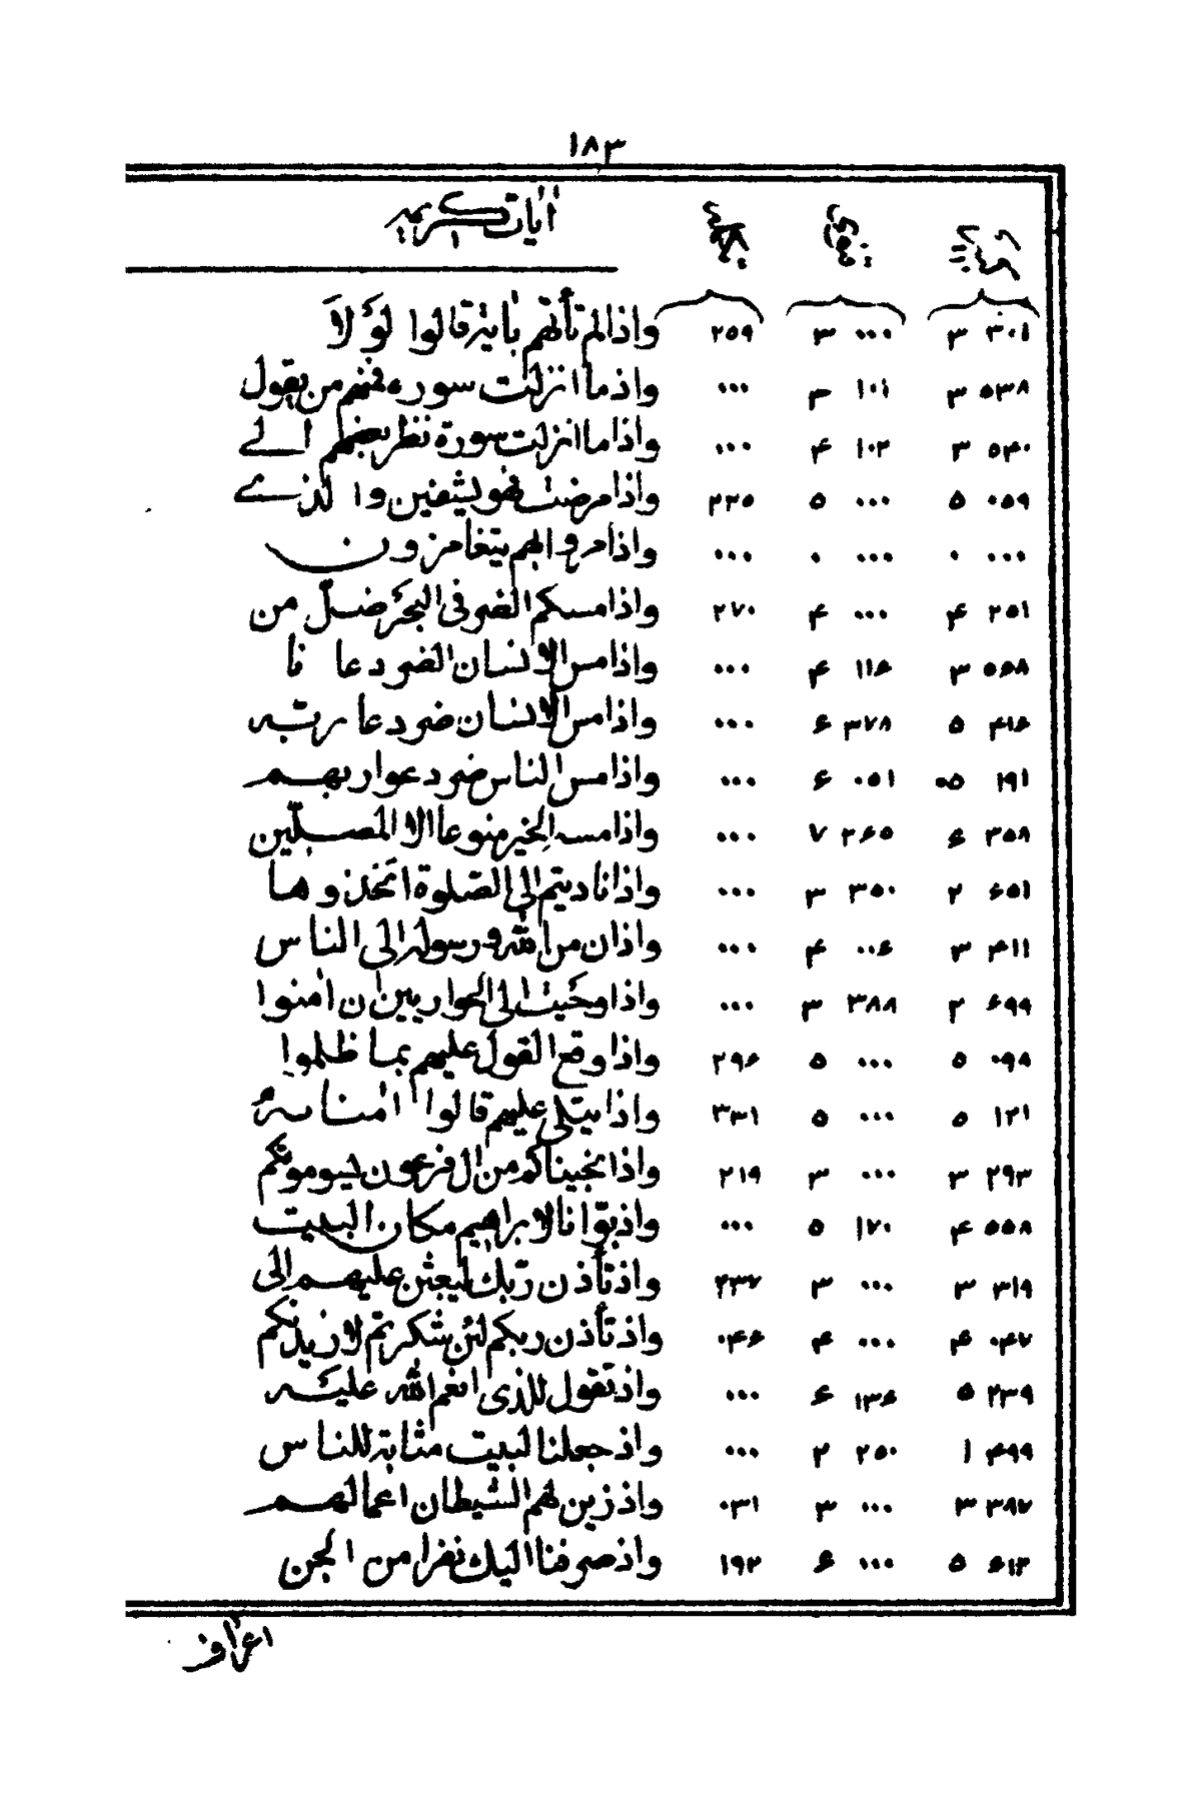 ۱۸۳
اٰیات کریمه
۳۰۱ ۳ ۰۰۰ ۳ ۲۵۹ واذالم تأتهم بأیة قالوا لَوْ لاَ
۵۳۸ ۳ ۱۰۱ ۳ ۰۰۰ واذما انزلت سوره فمنهم من یقول
۵۴۰ ۳ ۱۰۲ ۴ ۰۰۰ واذاما انزلت سورة نظر بعضهم الے
۰۵۹ ۵ ۰۰۰ ۵ ۲۲۵ واذامرضت فهو یشفین وا لذے
۰۰۰ ۰ ۰۰۰ ۰ ۰۰۰ واذامروابهم یتغامزون
۲۵۱ ۴ ۰۰۰ ۴ ۲۷۰ واذامسکم الضر فی البحر ضلّ من
۵۶۸ ۳ ۱۱۶ ۴ ۰۰۰ واذامس الانسان الضر دعا نا
۴۱۶ ۵ ۳۷۸ ۶ ۰۰۰ واذامس الانسان ضر دعا ربّه
۱۹۱ ۰۵ ۰۵۱ ۶ ۰۰۰ واذامس الناس ضر دعوا ربهم
۳۵۸ ۶ ۲۶۵ ۷ ۰۰۰ واذامسه الخیر منوعا الا المصلّین
۶۵۱ ۲ ۳۵۰ ۳ ۰۰۰ واذانادیتم الی الصّلوة اتخذوها
۴۱۱ ۳ ۰۰۶ ۴ ۰۰۰ واذان من الله ورسوله الی الناس
۶۹۹ ۲ ۳۸۸ ۳ ۰۰۰ واذاوحیت الی الحواریین ان اٰمنوا
۰۹۸ ۵ ۰۰۰ ۵ ۲۹۶ واذاوقع القول علیهم بما ظلموا
۱۲۱ ۵ ۰۰۰ ۵ ۳۳۱ واذایتلی علیهم قالوا اٰمنا به
۲۹۳ ۳ ۰۰۰ ۳ ۲۱۹ واذانجیناکم من ال فرعون یسومونکم
۵۵۸ ۴ ۱۷۰ ۵ ۰۰۰ واذبوّانا لابراهیم مکان البیت
۳۱۹ ۳ ۰۰۰ ۳ ۲۳۷ واذتأذن ربّک لیبعثن علیهم الی
۰۴۷ ۴ ۰۰۰ ۴ ۰۴۶ واذتأذن ربکم لئن شکرتم لازیدنکم
۲۳۹ ۵ ۱۳۶ ۶ ۰۰۰ واذتقول للذی انعم الله علیه
۴۹۹ ۱ ۲۵۰ ۲ ۰۰۰ واذجعلنا لبیت مثابة للناس
۳۸۷ ۳ ۰۰۰ ۳ ۰۳۱ واذزین لهم الشیطان اعمالهم
۶۱۳ ۵ ۰۰۰ ۶ ۱۹۲ واذصرفنا الیک نفرا من الجن